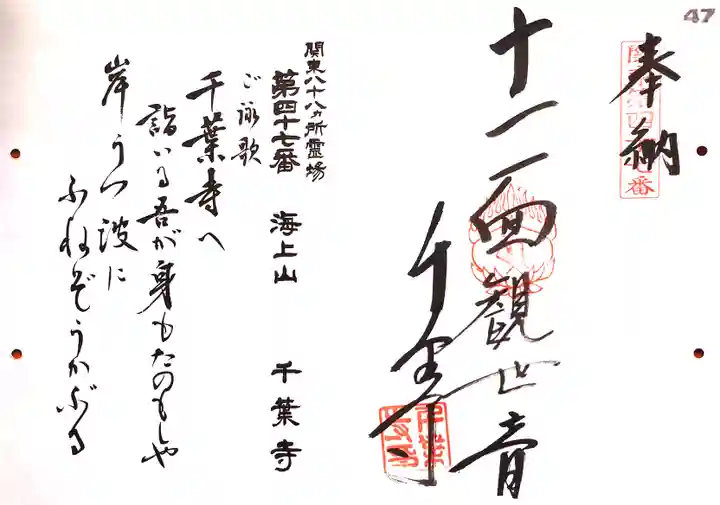 47
奉納
十一面観世音
千葉寺
関東八十八ヵ所霊場
第四十七番 海上山 千葉寺
ご詠歌
千葉寺へ
詣いる吾が身もたのもしや
岸うつ波に
ふねぞうかぶる